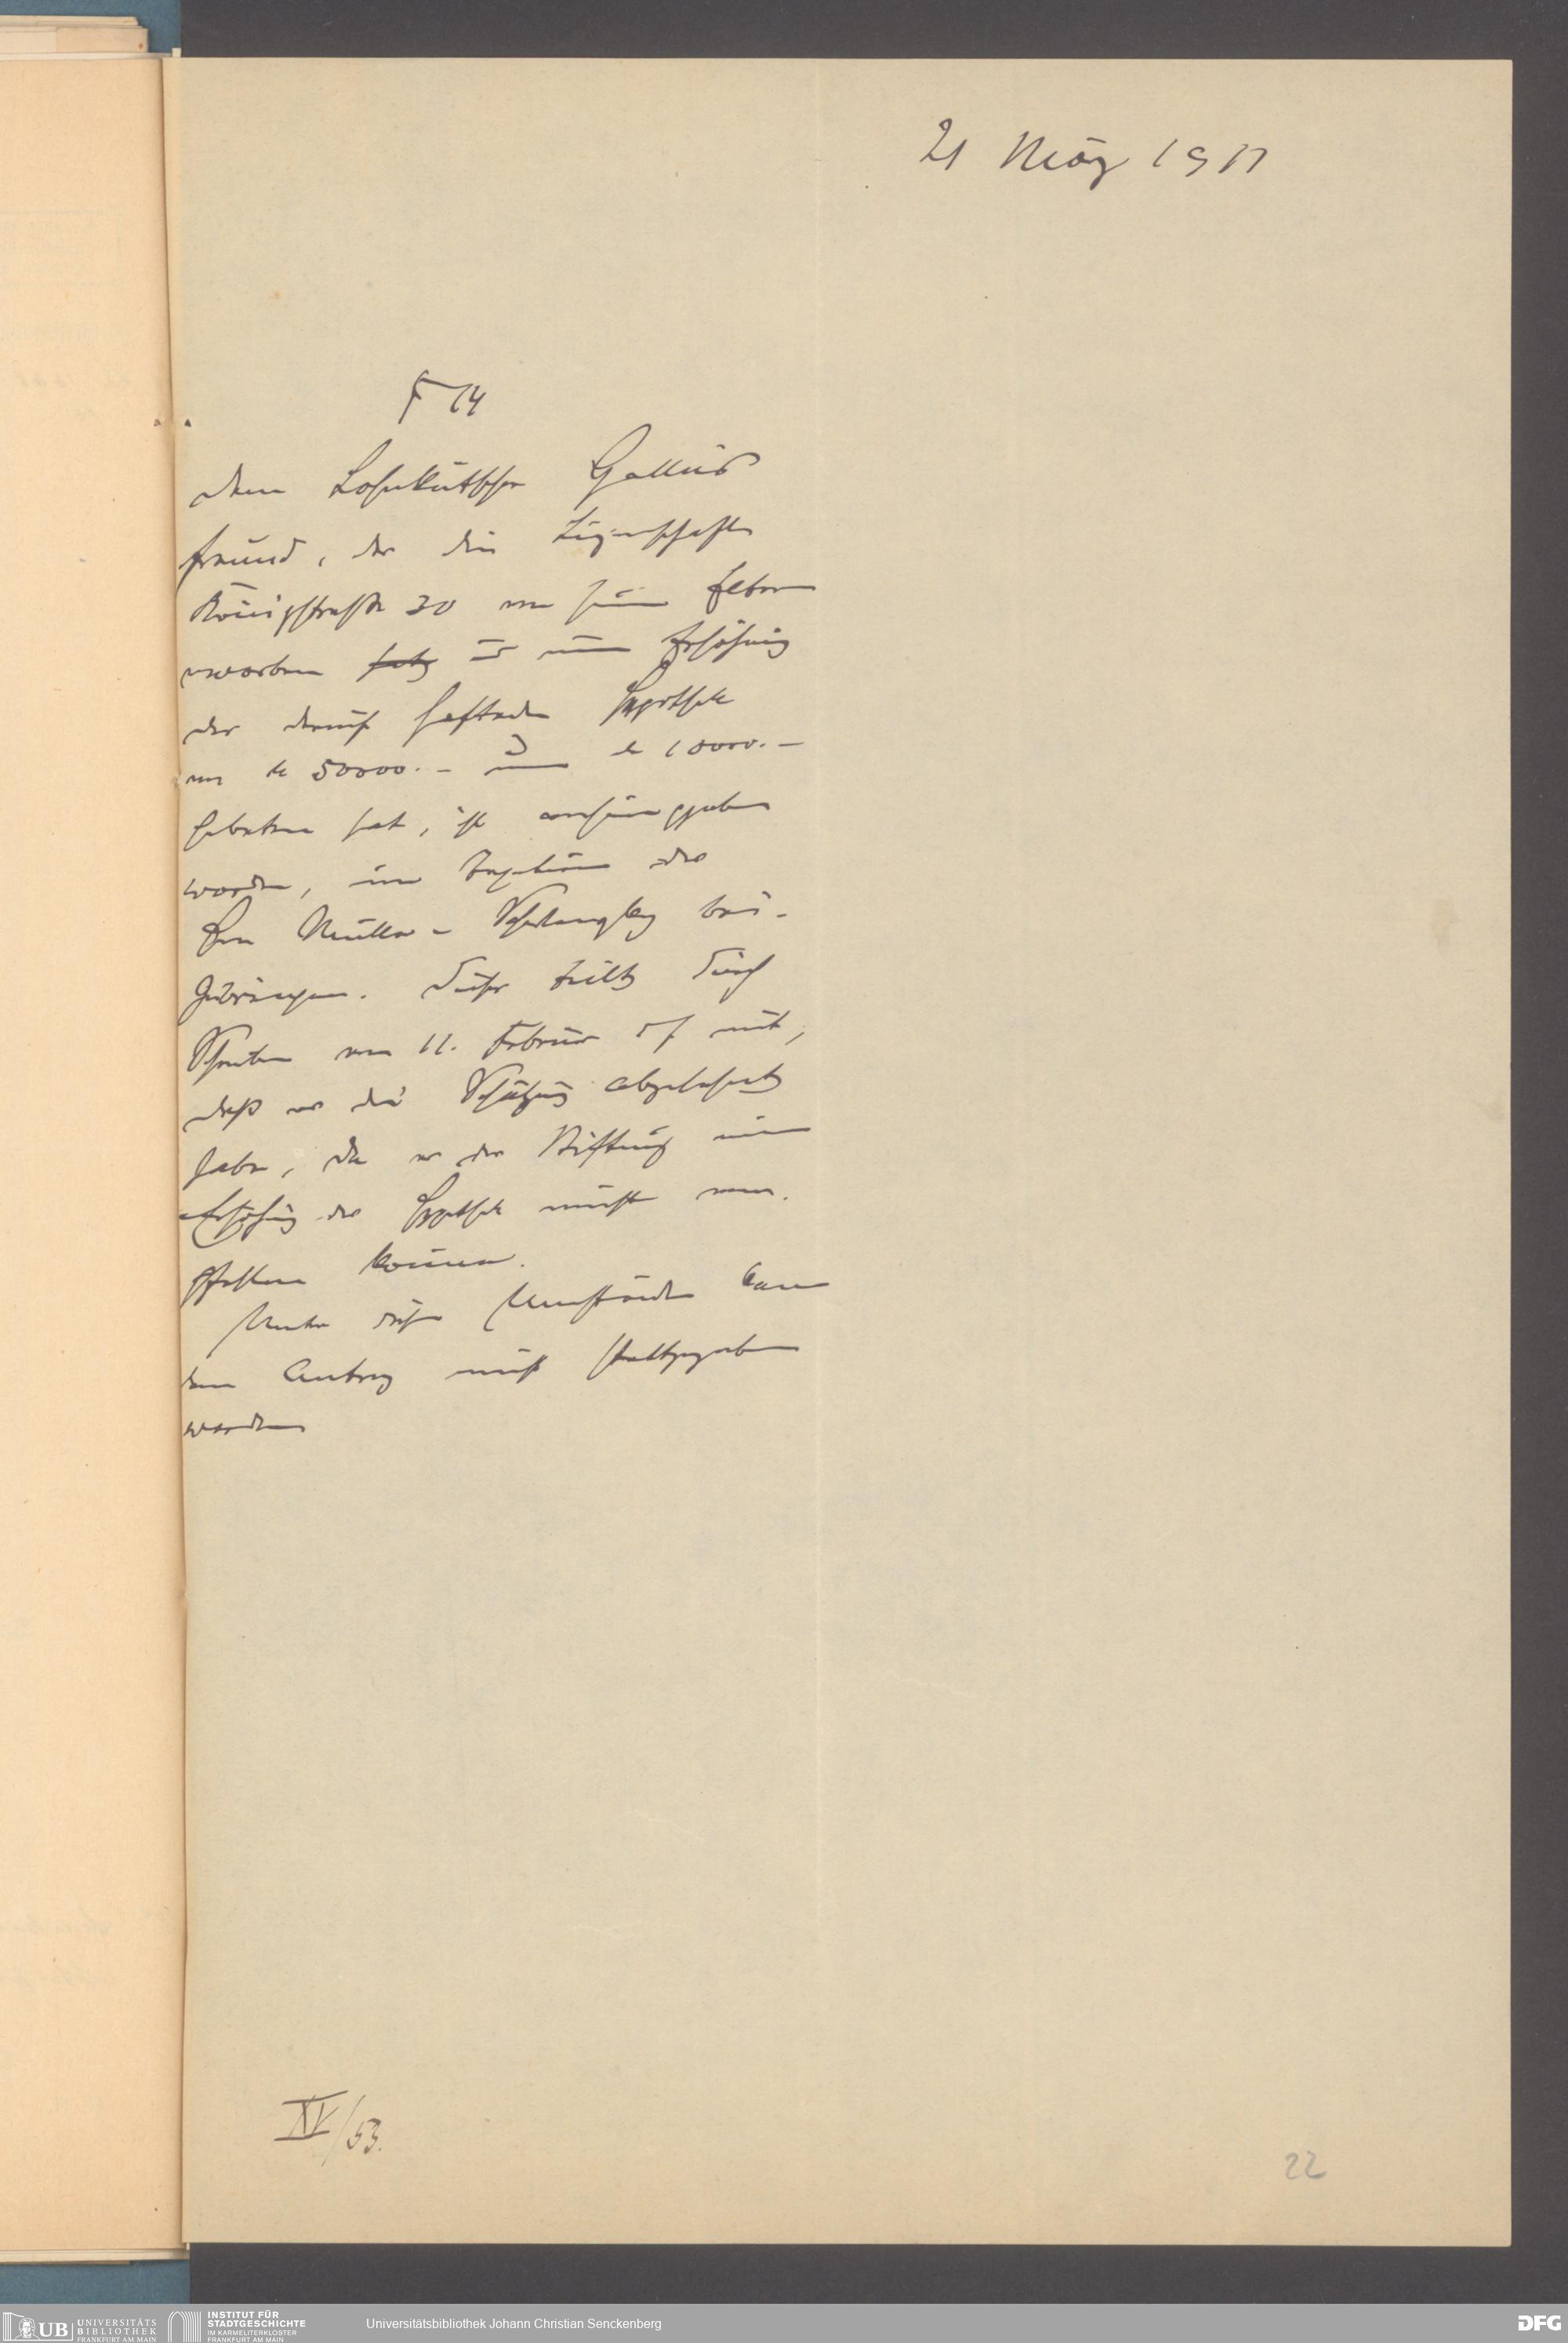 21 März 1911
F 14
dem Lohnkutscher Gallus
Freund, der die Liegenschaft
Königstraße 30 von seinen Eltern
erworben hat, und um Erhöhung
der darauf haftenden Hypothek
von M 50000.- um M 10000.-
gebeten hat, ist anheimgegeben
worden, eine des
Herrn Müller - bei-
zubringen. Dieser teilte durch
Schreiben vom 11. Februar mit,
daß er die Schätzung abgelehnt
habe, da er der Stiftung eine
Erhöhung der Hypothek nicht em-
pfehlen könne.
Unter diesen Umständen kann
dem Antrag nicht stattgegeben
werden
IV/53.
22
UB UNIVERSITÄTS
BIBLIOTHEK
FRANKFURT AM MAIN
INSTITUT FÜR
STADTGESCHICHTE
IM KARMELITERKLOSTER
FRANKFURT AM MAIN
Universitätsbibliothek Johann Christian Senckenberg
DFG